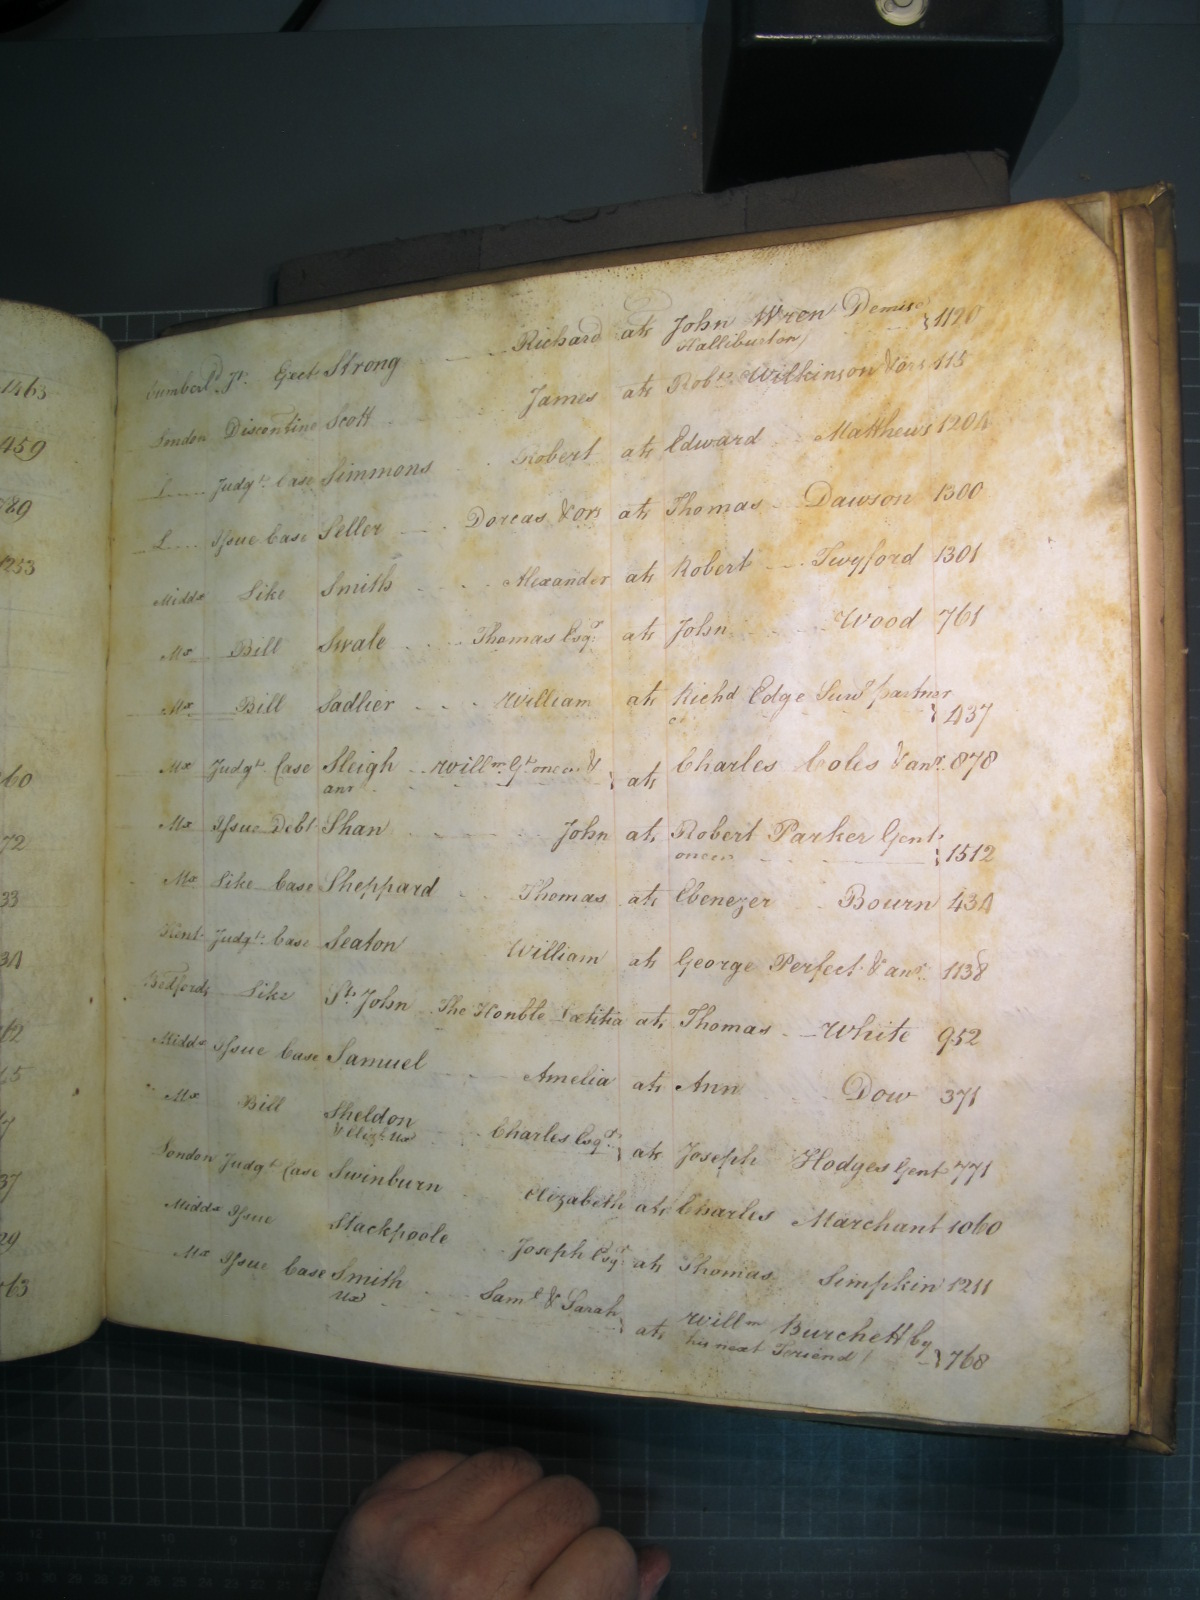 1463
Cumberld Jt. Eject Strong Richard at John Wren Demise
Halliburton } 1120
459
London Discontine Scott James at Robt. Wilkinson & ors 115
L Judgt. Case Simmons Robert at Edward Matthews 1204
789
L Issue Case Seller Dorcas & ors at Thomas Dawson 1300
1233
Middx Like Smith Alexander at Robert Twyford 1301
Mx Bill Swale Thomas Esqr. at John Wood 761
Mx Bill Sadlier William at Richd Edge Survg partner
} 437
Mx Judgt. Case Sleigh Willm. Gt. oneer &
anr } at Charles Coles & anr. 878
60
Mx Issue Debt Shan John at Robert Parker Gent.
oneer } 1512
72
Mx Like Case Sheppard Thomas at Ebenezer Bourn 434
33
Kent Judgt. Case Seaton William at George Perfect & anr. 1138
34
Bedfords Like St. John The Honble Lætitia at Thomas White 952
Midds Issue Case Samuel Amelia at Ann Dow 371
Mx Bill Sheldon Charles Esqr.
& Eliz. Ux } at Joseph Hodges Gent 771
London Judgt. Case Swinburn Elizabeth at Charles Marchant 1060
37
Middx Issue Stackpoole Joseph Esqr at Thomas Simpkin 1211
Mx Issue Case Smith Saml. & Sarah
Ux } at Willm Burchett by
his next Friend } 768
63